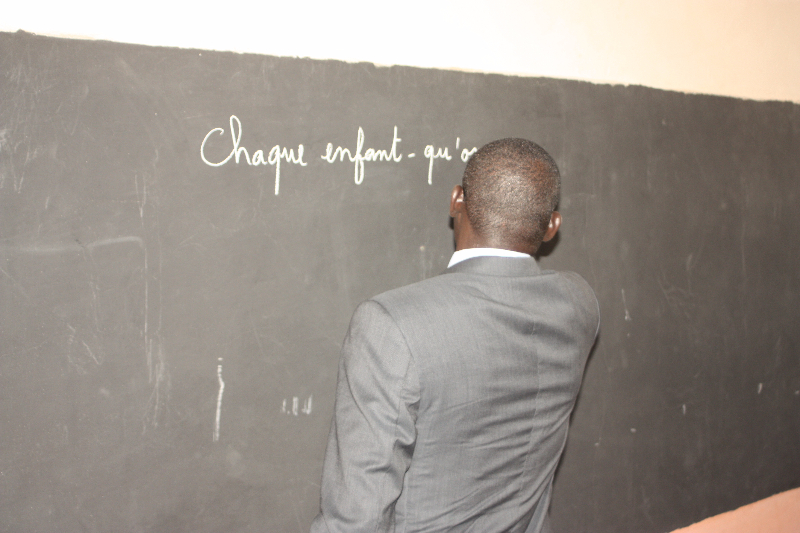 Chaque enfant-